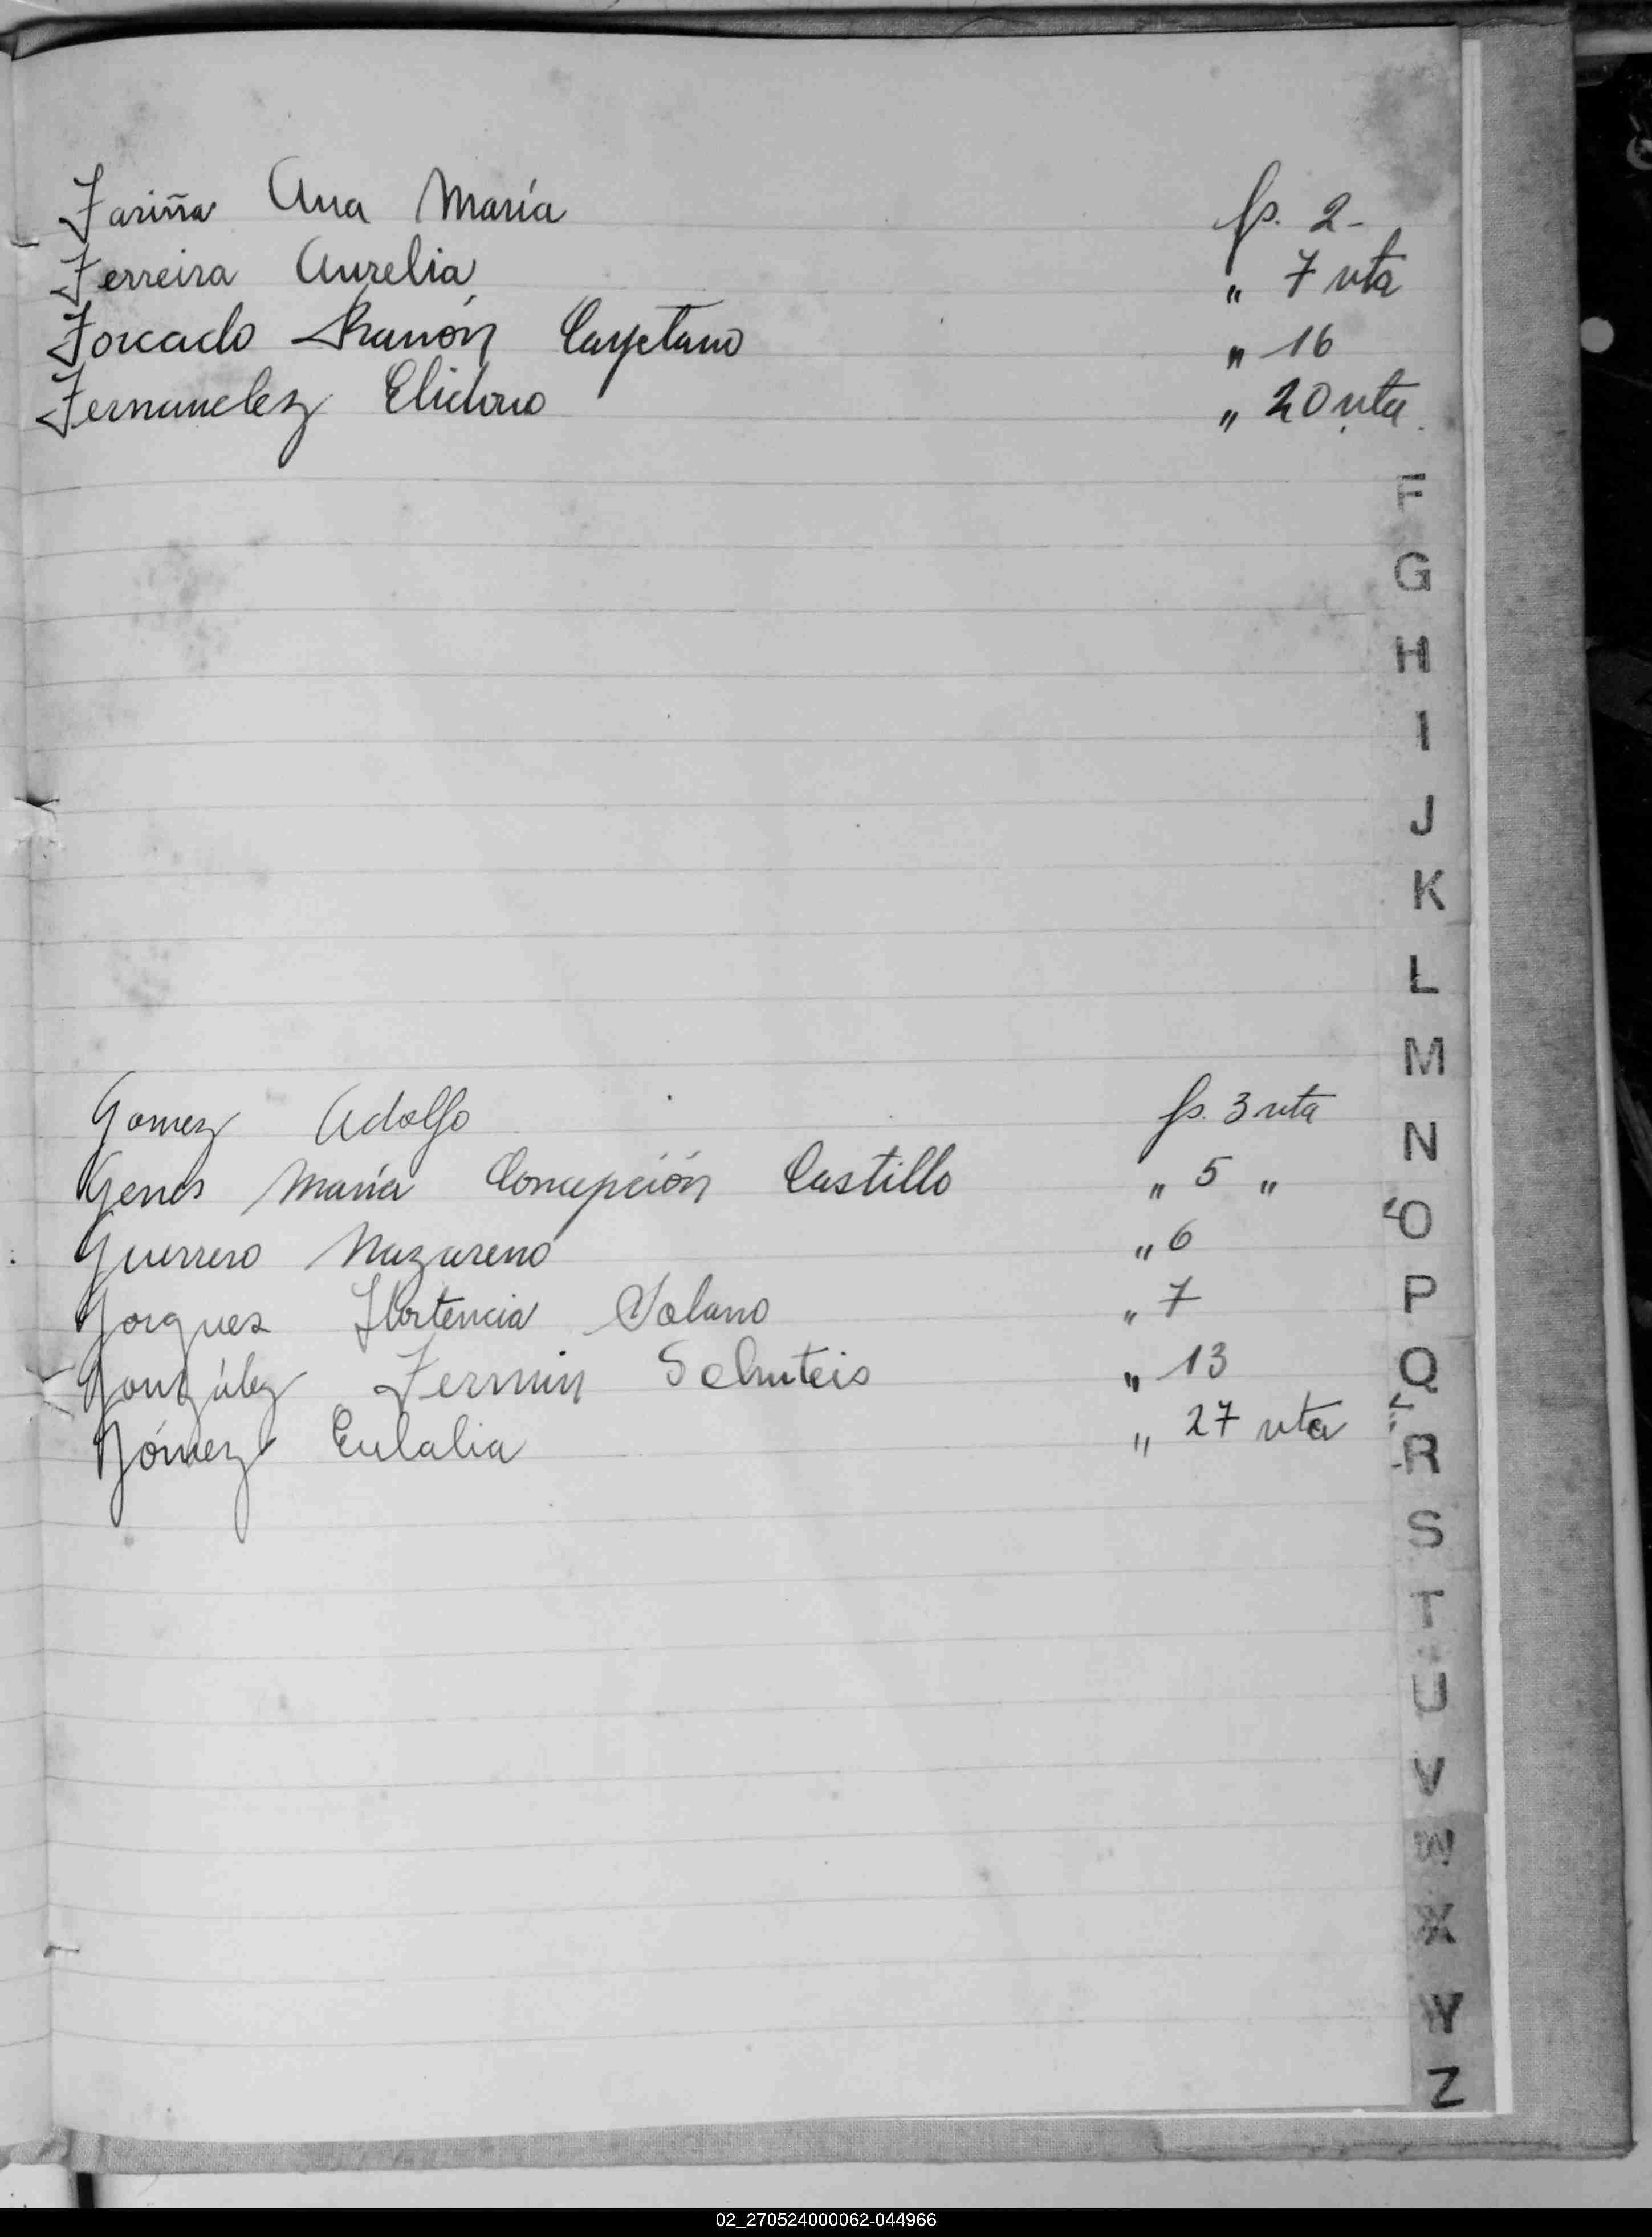 Fariña Ana María fs. 2-
Ferreira Aurelia " 7 vta
Forcado Ramón Cayetano " 16
Fernandez Elidoro " 20 vta.
F
G
H
I
J
K
L
M
Gomez Adolfo fs. 3 vta
Genes María Concepción Castillo " 5 "
Guerrero Nazareno " 6
Gorgues Hortencia Solano " 7
González Fermin " 13
Gómez Eulalia " 27 vta
N
O
P
Q
R
S
T
U
V
W
X
Y
Z
02_270524000062-044966